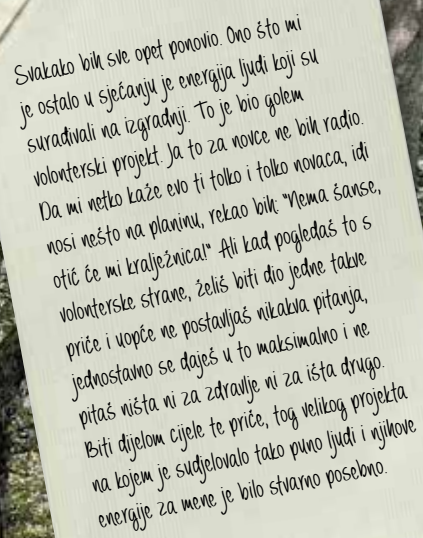 Svakako bih sve opet ponovio. Ono što mi
je ostalo u sjećanju je energija ljudi koji su
surađivali na izgradnji. To je bio golem
volonterski projekt. Ja to za novce ne bih radio.
Da mi netko kaže evo ti tolko i tolko novaca, idi
nosi nešto na planinu, rekao bih: "Nema šanse,
otić će mi kralježnica!" Ali kad pogledaš to s
volonterske strane, želiš biti dio jedne takve
priče i uopće ne postavljaš nikakva pitanja,
jednostavno se daješ u to maksimalno i ne
pitaš ništa ni za zdravlje ni za išta drugo.
Biti dijelom cijele te priče, tog velikog projekta
na kojem je sudjelovalo tako puno ljudi i njihove
energije za mene je bilo stvarno posebno.